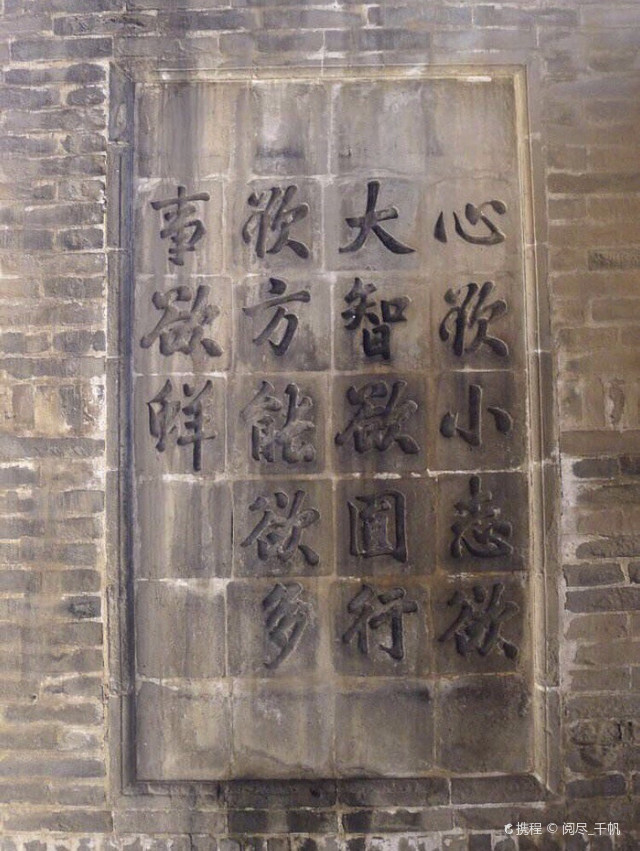 心欲小志欲
大智欲圆行
欲方能欲多
事欲鲜
携程 © 阅尽_千帆